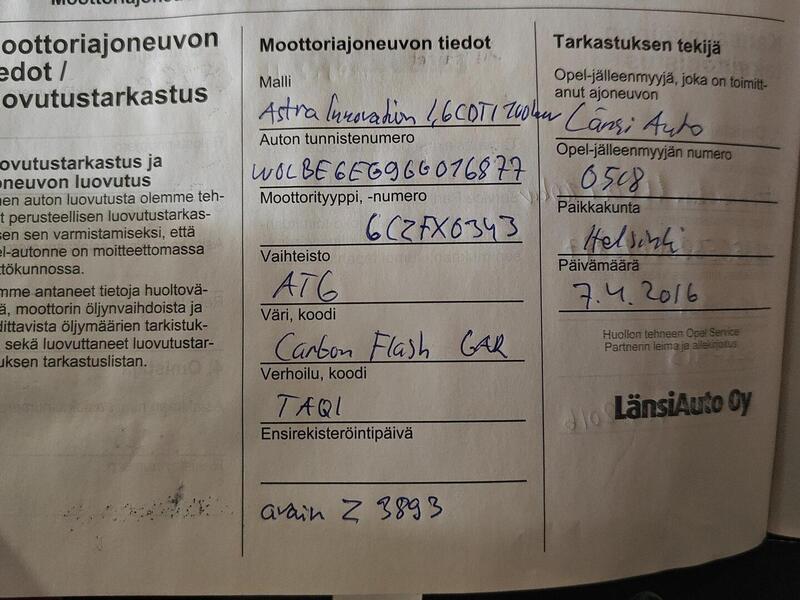 Moottoriajoneuvon
oottoriajoneuvon
edot /
ovutustarkastus
ovutustarkastus ja
oneuvon luovutus
nen auton luovutusta olemme teh-
t perusteellisen luovutustarkas-
sen sen varmistamiseksi, että
el-autonne on moitteettomassa
ttökunnossa.
mme antaneet tietoja huoltovä-
ä, moottorin öljynvaihdoista ja
dittavista öljymäärien tarkistuk-
sekä luovuttaneet luovutustar-
uksen tarkastuslistan.
Moottoriajoneuvon tiedot
Malli
Astra Innovation 1,6CDTI 100kw
Auton tunnistenumero
W0LBE6EG9GG016877
Moottorityyppi, -numero
6CZFX0343
Vaihteisto
AT6
Väri, koodi
Carbon Flash GAR
Verhoilu, koodi
TAQI
Ensirekisteröintipäivä
avain Z 3893
Tarkastuksen tekijä
Opel-jälleenmyyjä, joka on toimitt-
anut ajoneuvon
Länsi Auto
Opel-jälleenmyyjän numero
0508
Paikkakunta
Helsinki
Päivämäärä
7.4.2016
Huollon tehneen Opel Service
Partnerin leima ja allekirjoitus
LänsiAuto Oy